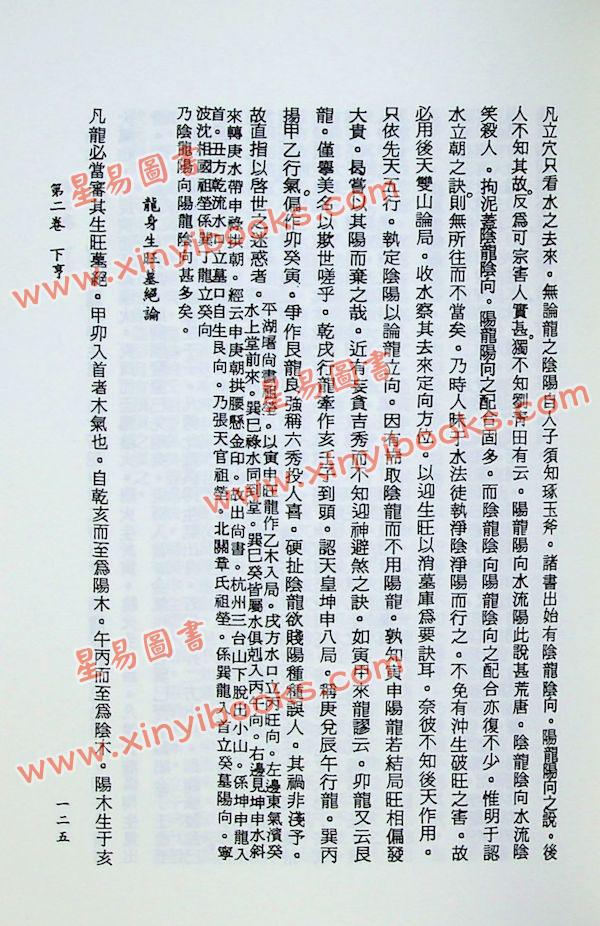 凡立穴只看水之去來。無論龍之陰陽自人子須知琢玉斧。諸書出始有陰龍陰向。陽龍陽向之說。後
人不知其故。反爲可宗害人實甚。獨不知劉青田有云。陽龍陽向水流陽此說甚荒唐。陰龍陰向水流陰
笑殺人。拘泥蓋陰龍陰向。陽龍陽向之配合固多。而陰龍陰向陽龍陰向之配合亦復不少。惟明于認
水立朝之訣則無所往而不當矣。乃時人昧于水法徒執淨陰淨陽而行之。不免有沖生破旺之害。故
必用後天雙山論局。收水察其去來定向方位。以迎生旺以消墓庫爲要訣耳。奈彼不知後天作用。
只依先天五行。執定陰陽以論龍立向。因有而取陰龍而不用陽龍。孰知寅申陽龍若結局旺相偏發
大貴。曷嘗以其陽而棄之哉。近有妄貪吉秀而不知迎神避煞之訣。如寅甲來龍謬云。卯龍又云艮
龍。僅舉美名以欺世嗟乎。乾戌行龍牽作亥壬子到頭。認天皇坤申八局。稱庚兌辰午行龍。巽丙
揚甲乙行氣俱作卯癸寅。爭作艮龍良強稱六秀投人喜。硬扯陰龍欲賤陽種種誤人。其禍非淺予。
故直指以啓世之迷惑者。平湖屠尚書祖塋。以寅申旺龍作乙木入局。戌方水口立丙旺向。左邊東氣濱癸
水上堂前來。巽巳祿水同到堂。巽巳癸皆屬水俱剋入丙午向。右邊見坤申水斜
來轉庚水帶申祿拱朝。經云申庚朝拱腰懸金印。故出尚書。杭州三台山下脫出小山。係坤申龍入
首。丑方乾流水口立墓口自生艮向。乃張天官祖塋。北關韋氏祖塋。係巽龍入首立癸墓陽向。寧
波沈相國祖塋係巽小龍立癸向
乃陰龍陽向陽龍陰向甚多矣。
龍身生旺墓絕論
凡龍必當審其生旺墓絕。甲卯入首者木氣也。自乾亥而至爲陽木。午丙而至爲陰木。陽木生于亥
第二卷 下亨
一二五
星易圖書
www.xinyibooks.com
星易圖書
www.xinyibooks.com
星易圖書
www.xinyibooks.com